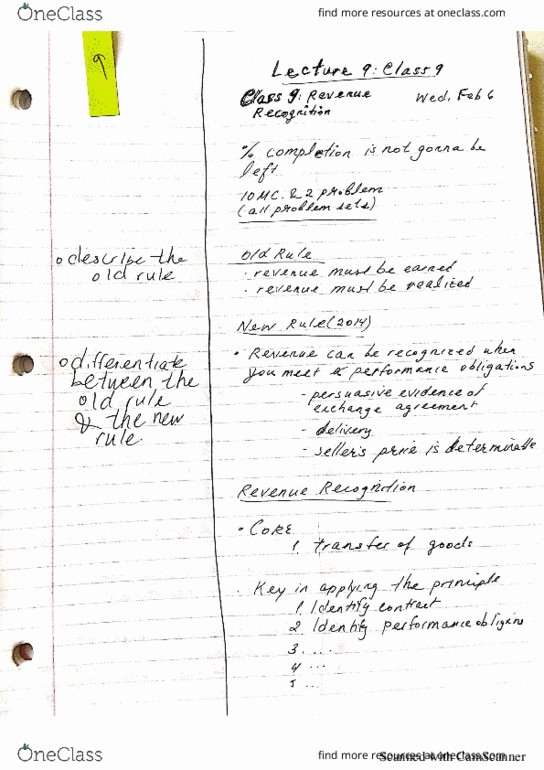 OneClass
find more resources at oneclass.com
9
Lecture 9: Class 9
Class 9: Revenue
Recognition
Wed, Feb 6
% completion is not gonna be
left
10 MC. & 2 problem
(all problem sets)
o describe the
old rule
Old Rule
· revenue must be earned
· revenue must be realized
New Rule (2014)
o differentiate
between the
old rule
& the new
rule.
• Revenue can be recognized when
you meet performance obligations
- persuasive evidence of
exchange agreement
- delivery
- seller's price is determinable
Revenue Recognition
• CORE
1. transfer of goods
. Key in applying the principle
1. Identify contract
2. Identify performance
3. ....
4 ...
5 ...
OneClass
find more resources at oneclass.com
Scanned with CamScanner